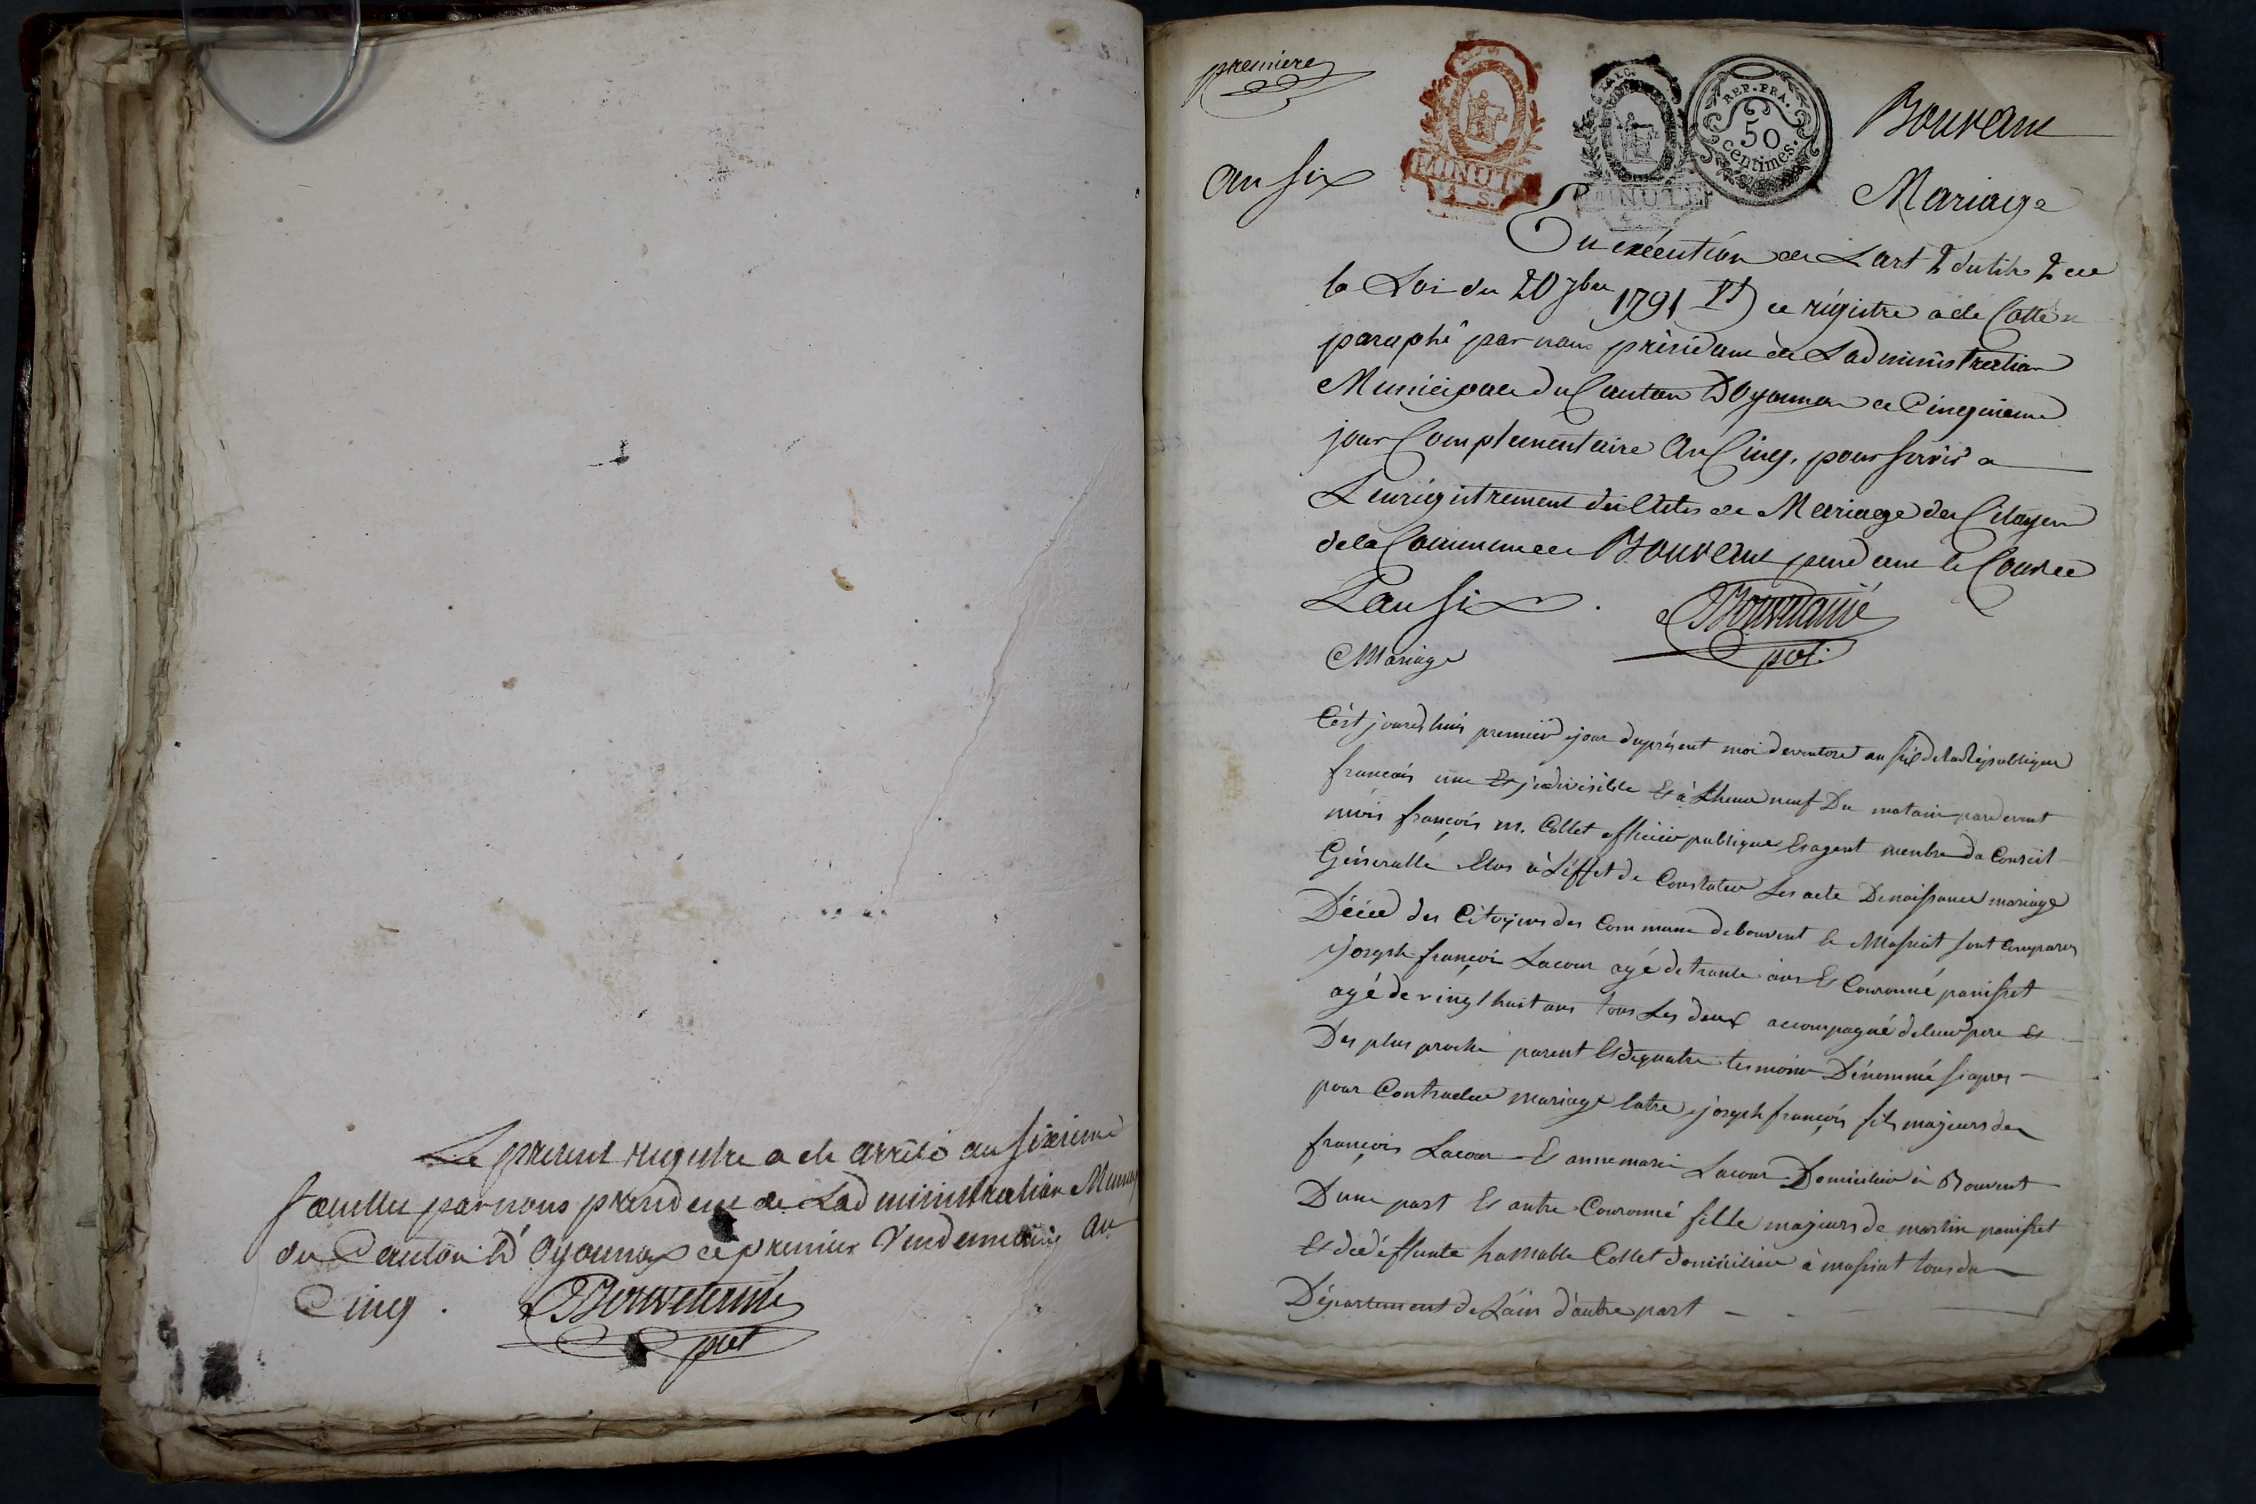 Le present registre a ete arrêté au sixieme
feuillet par nous president de Ladministration Munic
du Canton D'Oyonnax ce premier Vendemiaire an
Cinq .
Bouvetamié
pdt
premiere
an Six
MINUTE
4 S.
MINUTE
4 S.
REP. FRA.
50
centimes.
Bouvant
Mariage
En exécution de Lart 2 du titre 2 de
la Loi du 20 7bre 1791 Vst ce régistre a été Cotté et
paraphé par nous président de Ladministration
Municipale du Canton D'Oyonnax ce Cinquieme
jour Complementaire An Cinq, pour servir a
Lenrégistrement des Actes de Mariage des Citoyens
de la Commune de Bouvent pendant le Cours de
Lan Six .
pdt.
Mariage
Cest jourdhuis premier jour du présent moi de an six de la République
francais une Et jndivisible Et à Lheure neuf Du matain pardevent
mois françois m. Collet officier publique Et agent menbre du Conseil
Généralle Elus à L'éffet de Constater Les acte De naissance mariage
Décée des Citoyens des Commune de bouvent Et Massiat sont Comparus
joseph françoi Lacour agé de trante ans Et Couronné panisset
agé de vingt huit ans tous Les deux accompagné de leur pere Et
Des plus proche parent Et de quatre temoins Dénommé si apres
pour Contracter mariage Entre joseph françois fils majeurs de
françois Lacour Et anne marie Lacour Domicilié à Bouvent
D'une part Et antre Couronné fille majeurs de martin panisset
Et de déffunte Collet domicilié à massiat tous du
Département de L'ain d'autre part